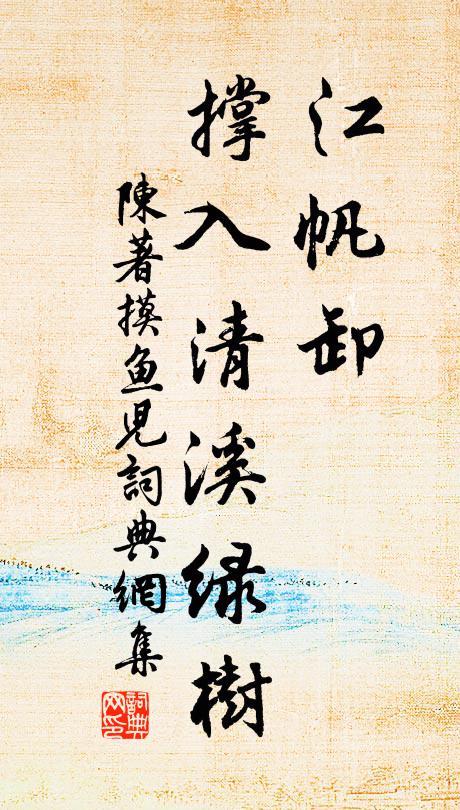 江帆卸
撐入清溪绿樹
陳著摸魚児詞典網集
詞典网印